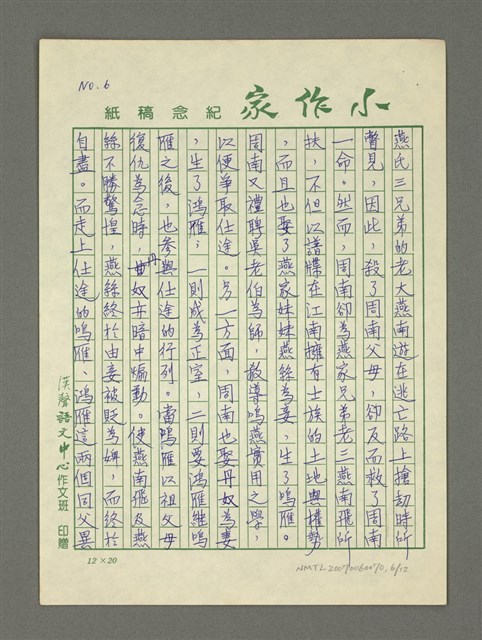 NO. 6
小作家紀念稿紙
燕氏三兄弟的老大燕南遊在逃亡路上搶劫時所
瞥見,因此,殺了周南父母,卻反而救了周南
一命。然而,周南卻為燕家兄弟老三燕南飛所
扶,不但以譜牒在江南擁有士族的土地與權勢
,而且也娶了燕家妹妹燕絲為妾,生了鳴雁。
周南又禮聘吳老伯為師,教導鳴燕實用之學,
以便爭取仕途。另一方面,周南也娶丹奴為妻
,生了鴻雁;一則成為正室,二則要鴻雁繼鳴
雁之後,也參與仕途的行列。當鳴雁以祖父母
復仇為念時,丹奴亦暗中煽動。使燕南飛及燕
絲不勝驚惶,燕絲終於由妾被貶為婢,而終於
自盡。而走上仕途的鳴雁、鴻雁這兩個同父異
漢聲語文中心作文班 印贈
12×20
NMTL20070060070,6/12